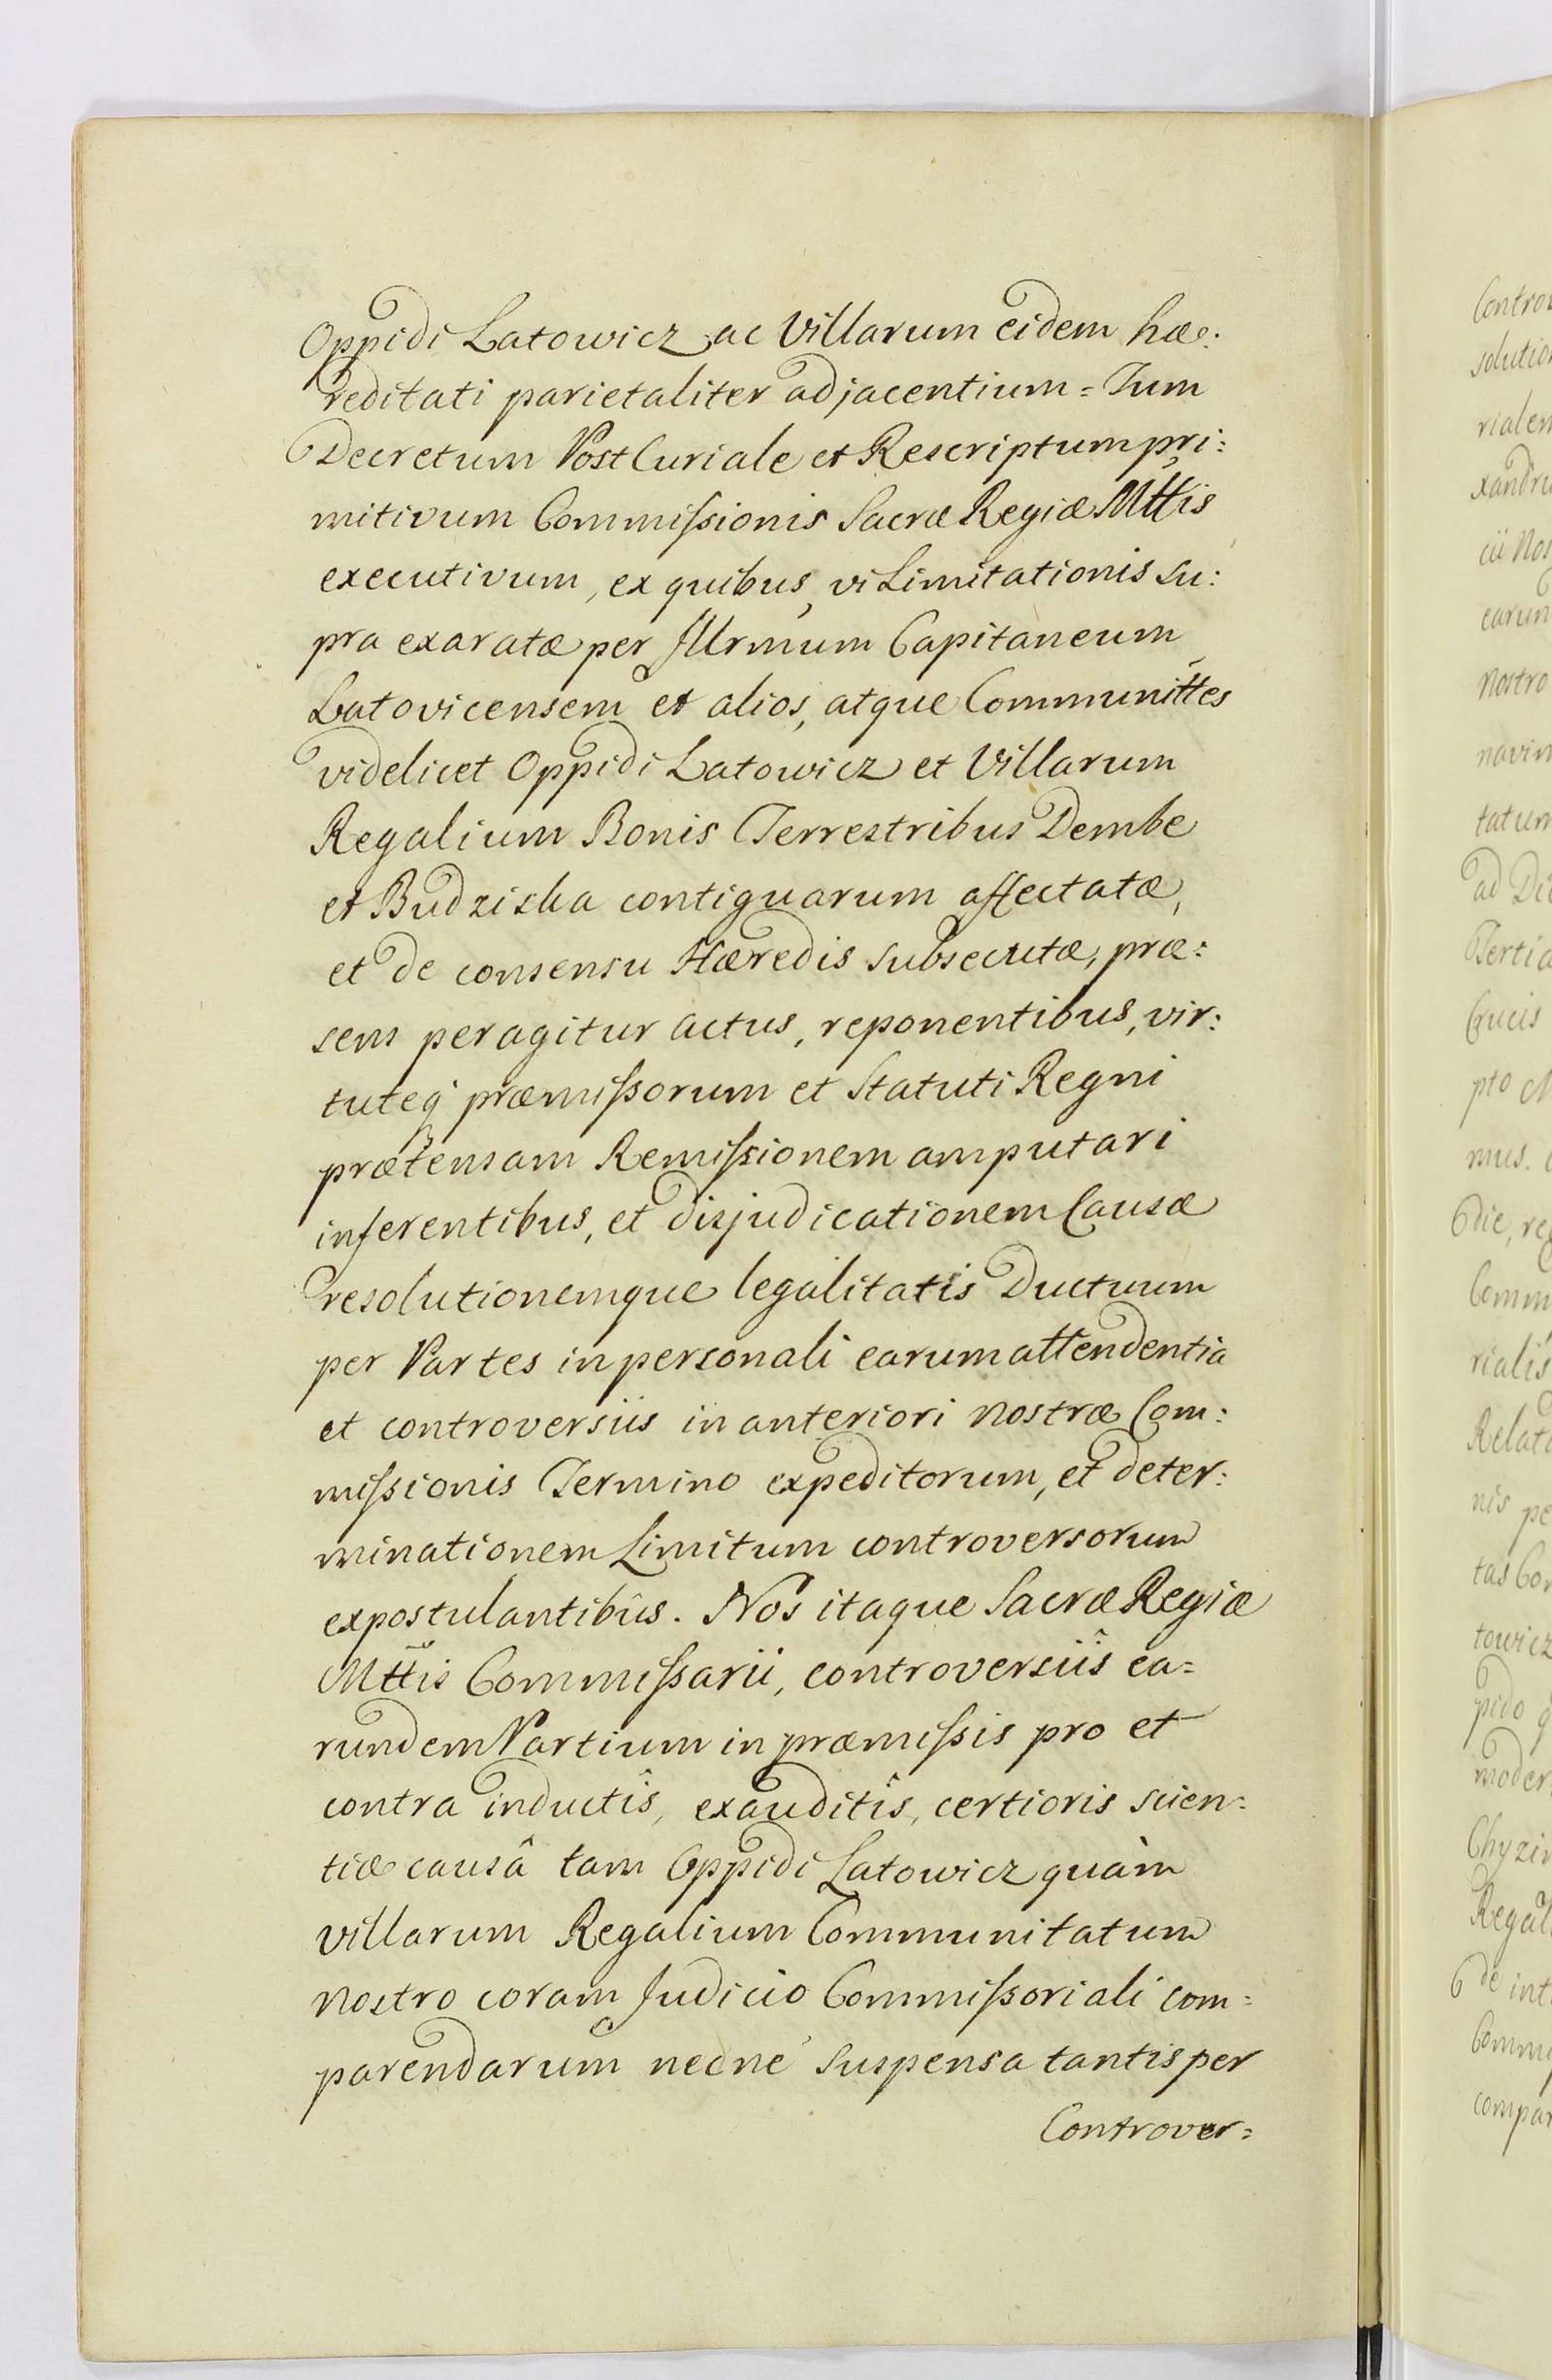 Oppidi Latowicz ac Villarum eidem hæ:
reditati parietaliter adjacentium = Tum
Decretum PostCuriale et Rescriptum pri:
mitivum Commiſsionis Sacræ Regiæ Mttis
executivum, ex quibus, vi Limitationis su:
pra exaratæ per Jllrmum Capitaneum
Latovicensem et alios, atque Communittes
videlicet Oppidi Latowicz et Villarum
Regalium Bonis Terrestribus Dembe
et Budziska contiguarum affectatæ,
et de consensu Hæredis subsecutæ, præ:
sens peragitur actus, reponentibus, vir:
tuteq præmiſsorum et Statuti Regni
prætensam Remiſsionem amputari
inferentibus, et disjudicationem Causæ
resolutionemque legalitatis Ductuum
per Partes in personali earum attendentia
et controversiis in anteriori nostræ Com:
miſsionis Termino expeditorum, et deter:
minationem Limitum controversorum
expostulantibûs. Nos itaque Sacræ Regiæ
Mttis Commiſsarii, controversiîs ea=
rundem Partium in præmiſsis pro et
contra inductîs, exauditîs, certioris scien=
tiæ causâ tam Oppidi Latowicz quàm
villarum Regalium Communitatum
nostro coram Judicio Commiſsoriali com=
parendarum necne suspensa tantisper
Controver=